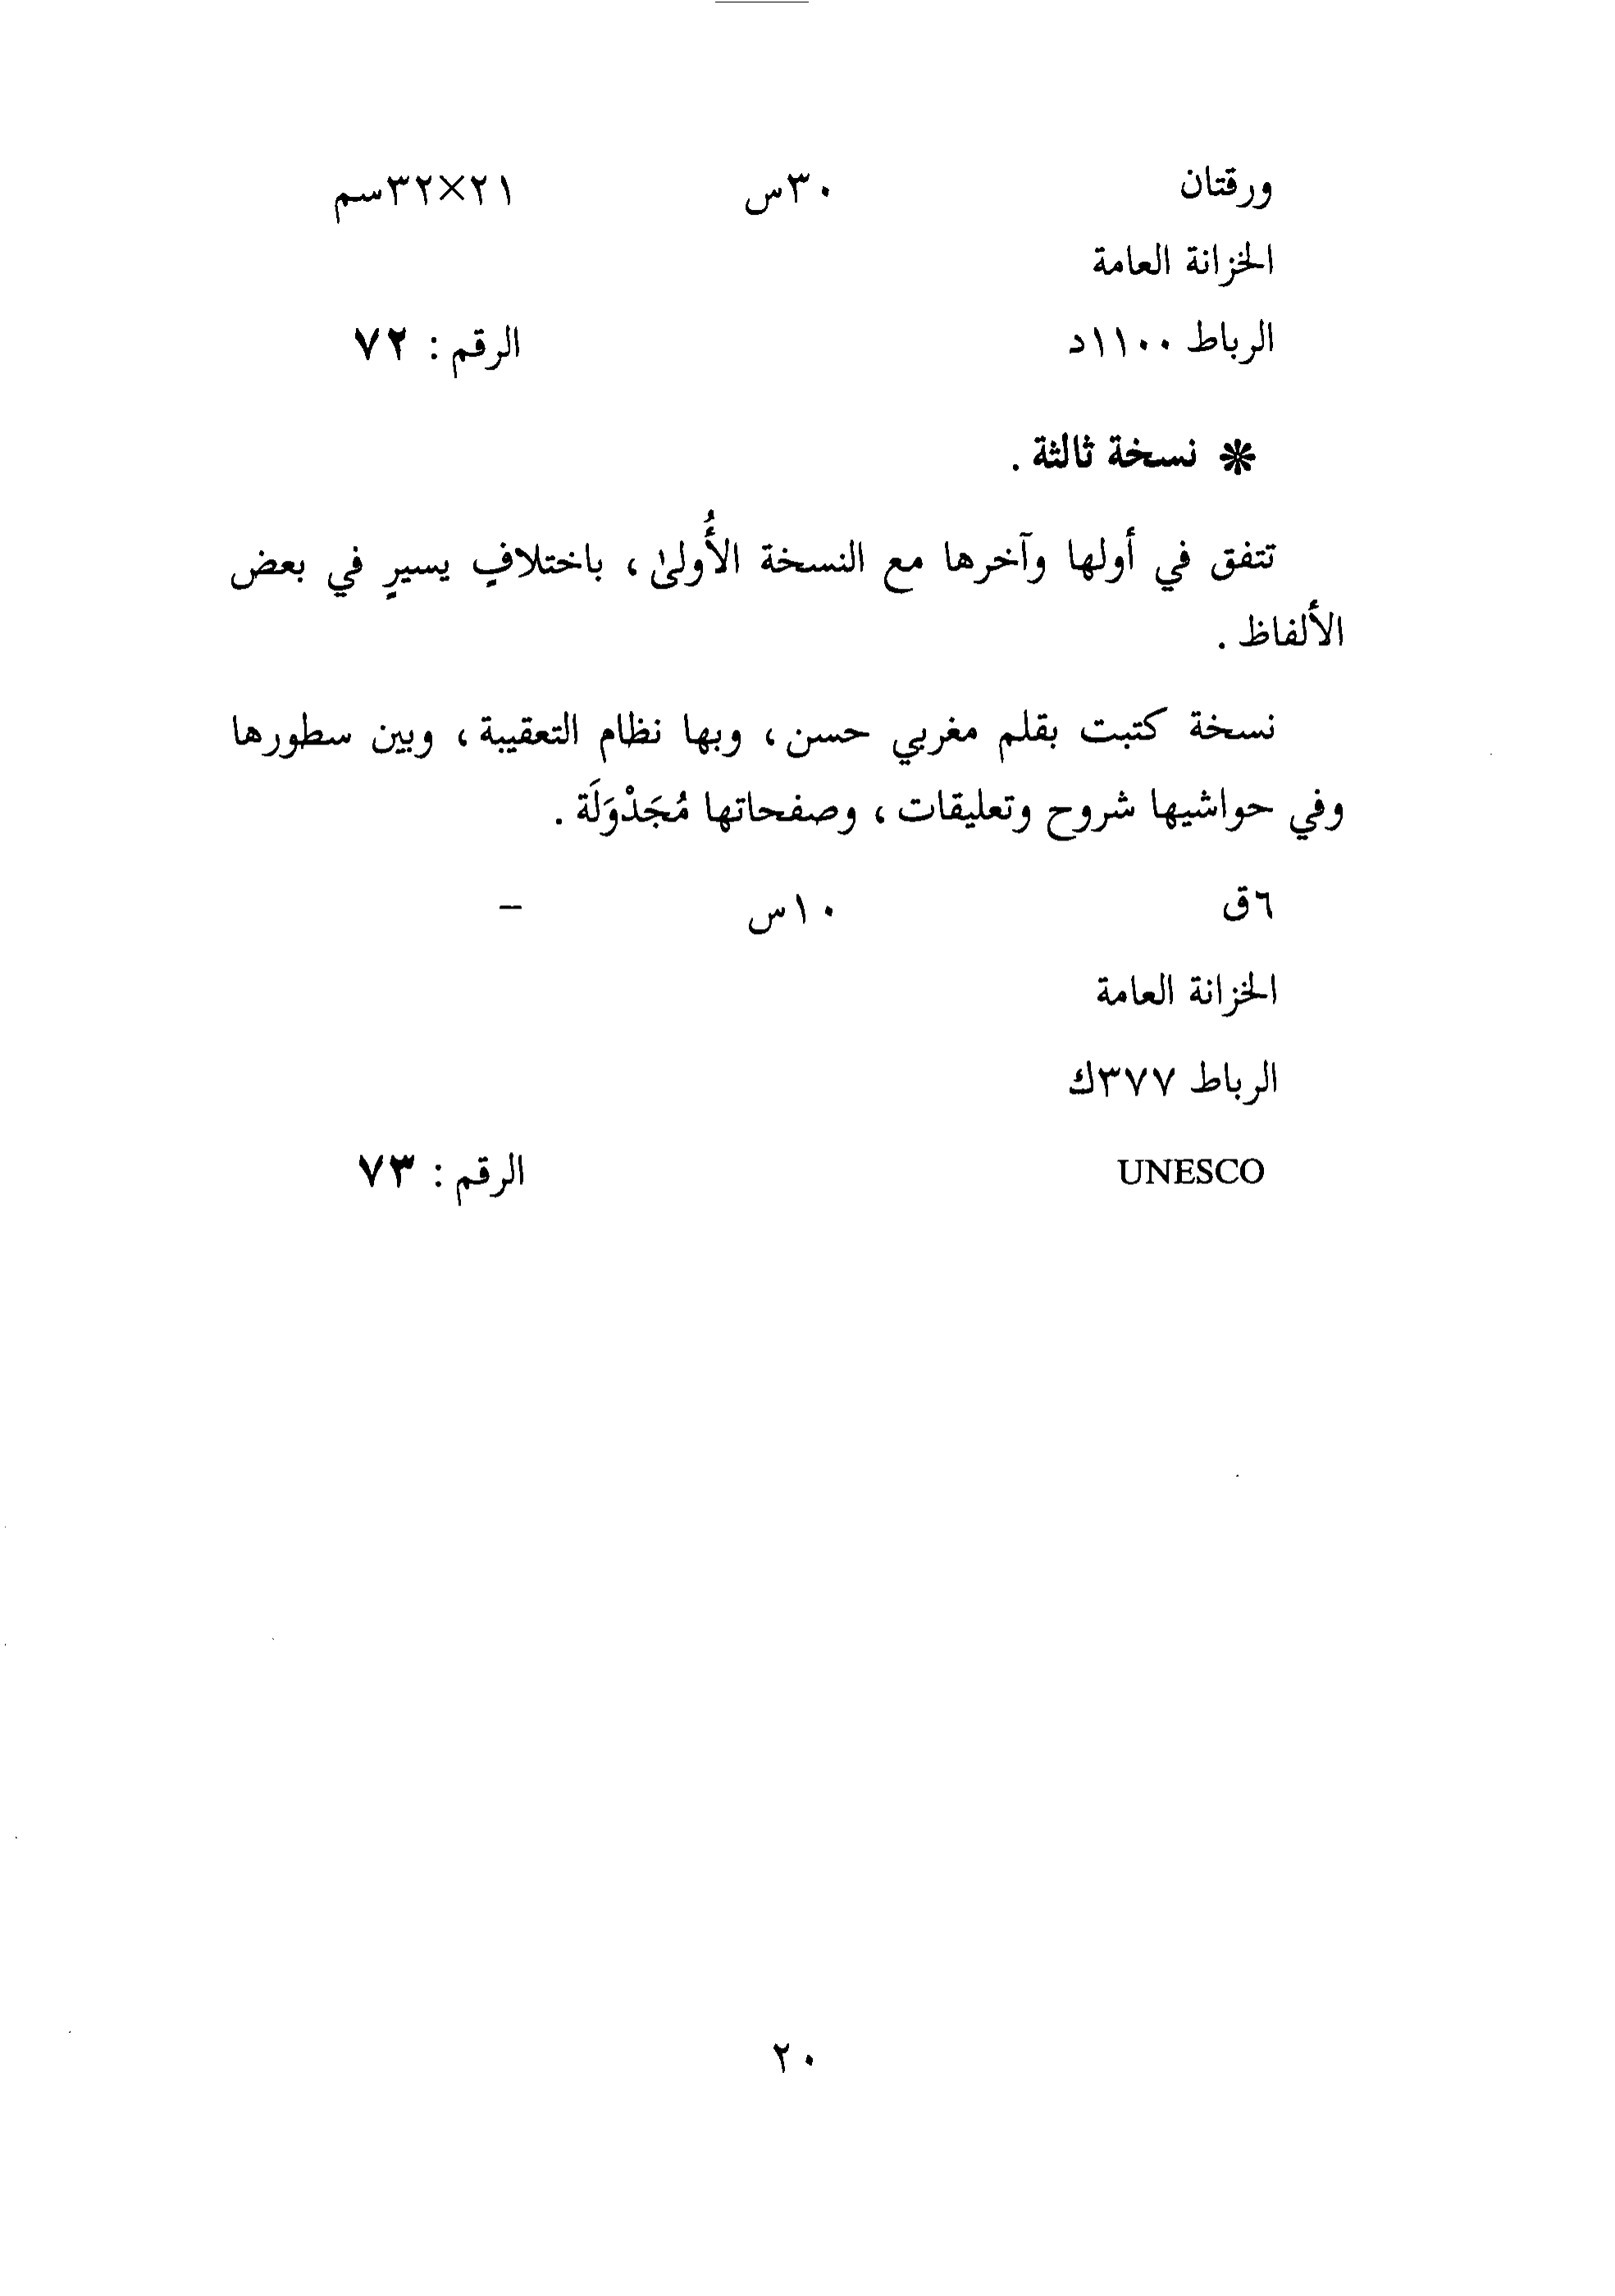 ورقتان ٣٠س ٢١×٣٢سم
الخزانة العامة
الرباط ١١٠٠د الرقم : ٧٢
* نسخة ثالثة .
تتفق في أولها وآخرها مع النسخة الأُولىٰ ، باختلافٍ يسيرٍ في بعض
الألفاظ .
نسخة كتبت بقلم مغربي حسن ، وبها نظام التعقيبة ، وبين سطورها
وفي حواشيها شروح وتعليقات ، وصفحاتها مُجَدْوَلَة .
٦ق ١٠س –
الخزانة العامة
الرباط ٣٧٧ك
UNESCO الرقم : ٧٣
٢٠